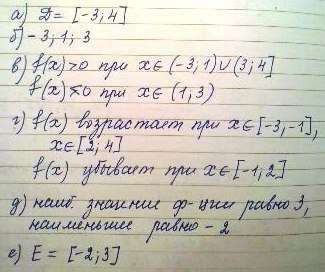 а) D = [-3; 4]
б) -3; 1; 3
в) f(x)>0 при x∈(-3;1)∪(3;4]
f(x)<0 при x∈(1;3)
г) f(x) возрастает при x∈[-3,-1],
x∈[2;4]
f(x) убывает при x∈[-1,2]
д) наиб. значение ф-ции равно 3,
наименьшее равно -2
е) E = [-2;3]